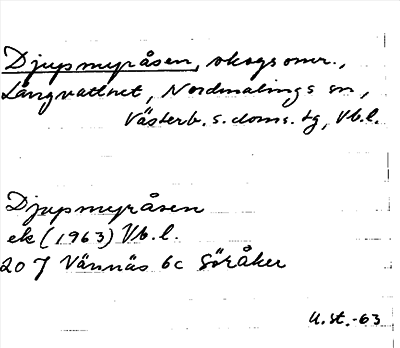 Djupmyråsen, skogsomr.,
Långvattnet, Nordmalings sn,
Västerb. s. doms. tg, Vb.l.
Djupmyråsen
ek (1963) Vb.l.
20 J Vännäs 6c Söråker
U.St.-63